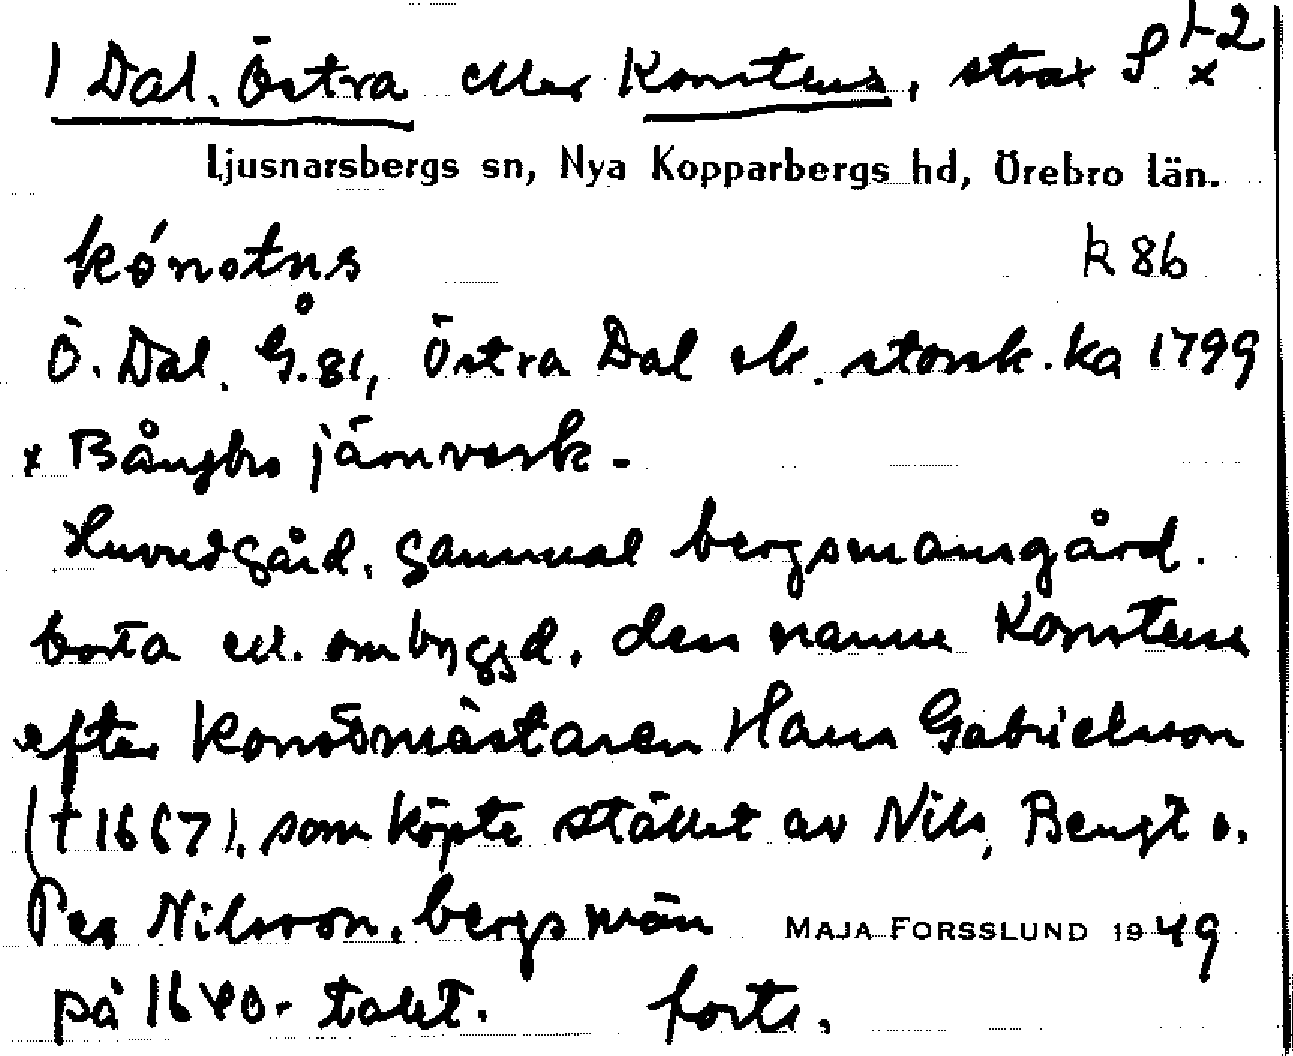 1 Dal, Östra eller Konstens, strax S 1-2 x
Ljusnarsbergs sn, Nya Kopparbergs hd, Örebro län.
kónstns k 86
Ö. Dal. G.81, Östra Dal sk. storsk. ka 1799
x Bångbro järnverk.
Huvudgård, gammal bergsmansgård.
borta el. ombyggd, den namn Konstens
efter konstmästaren Hans Gabrielsson
(† 1667), som köpte stället av Nils, Bengt o.
Per Nilsson, bergsmän MAJA FORSSLUND 1949
på 1640-talet. forts.